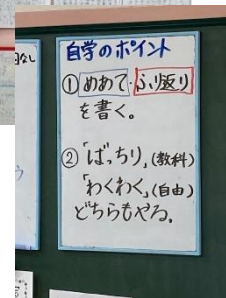 自学のポイント
①めあて・ふり返り
を書く。
②「ばっちり」(教科)
「わくわく」(自由)
どちらもやる。